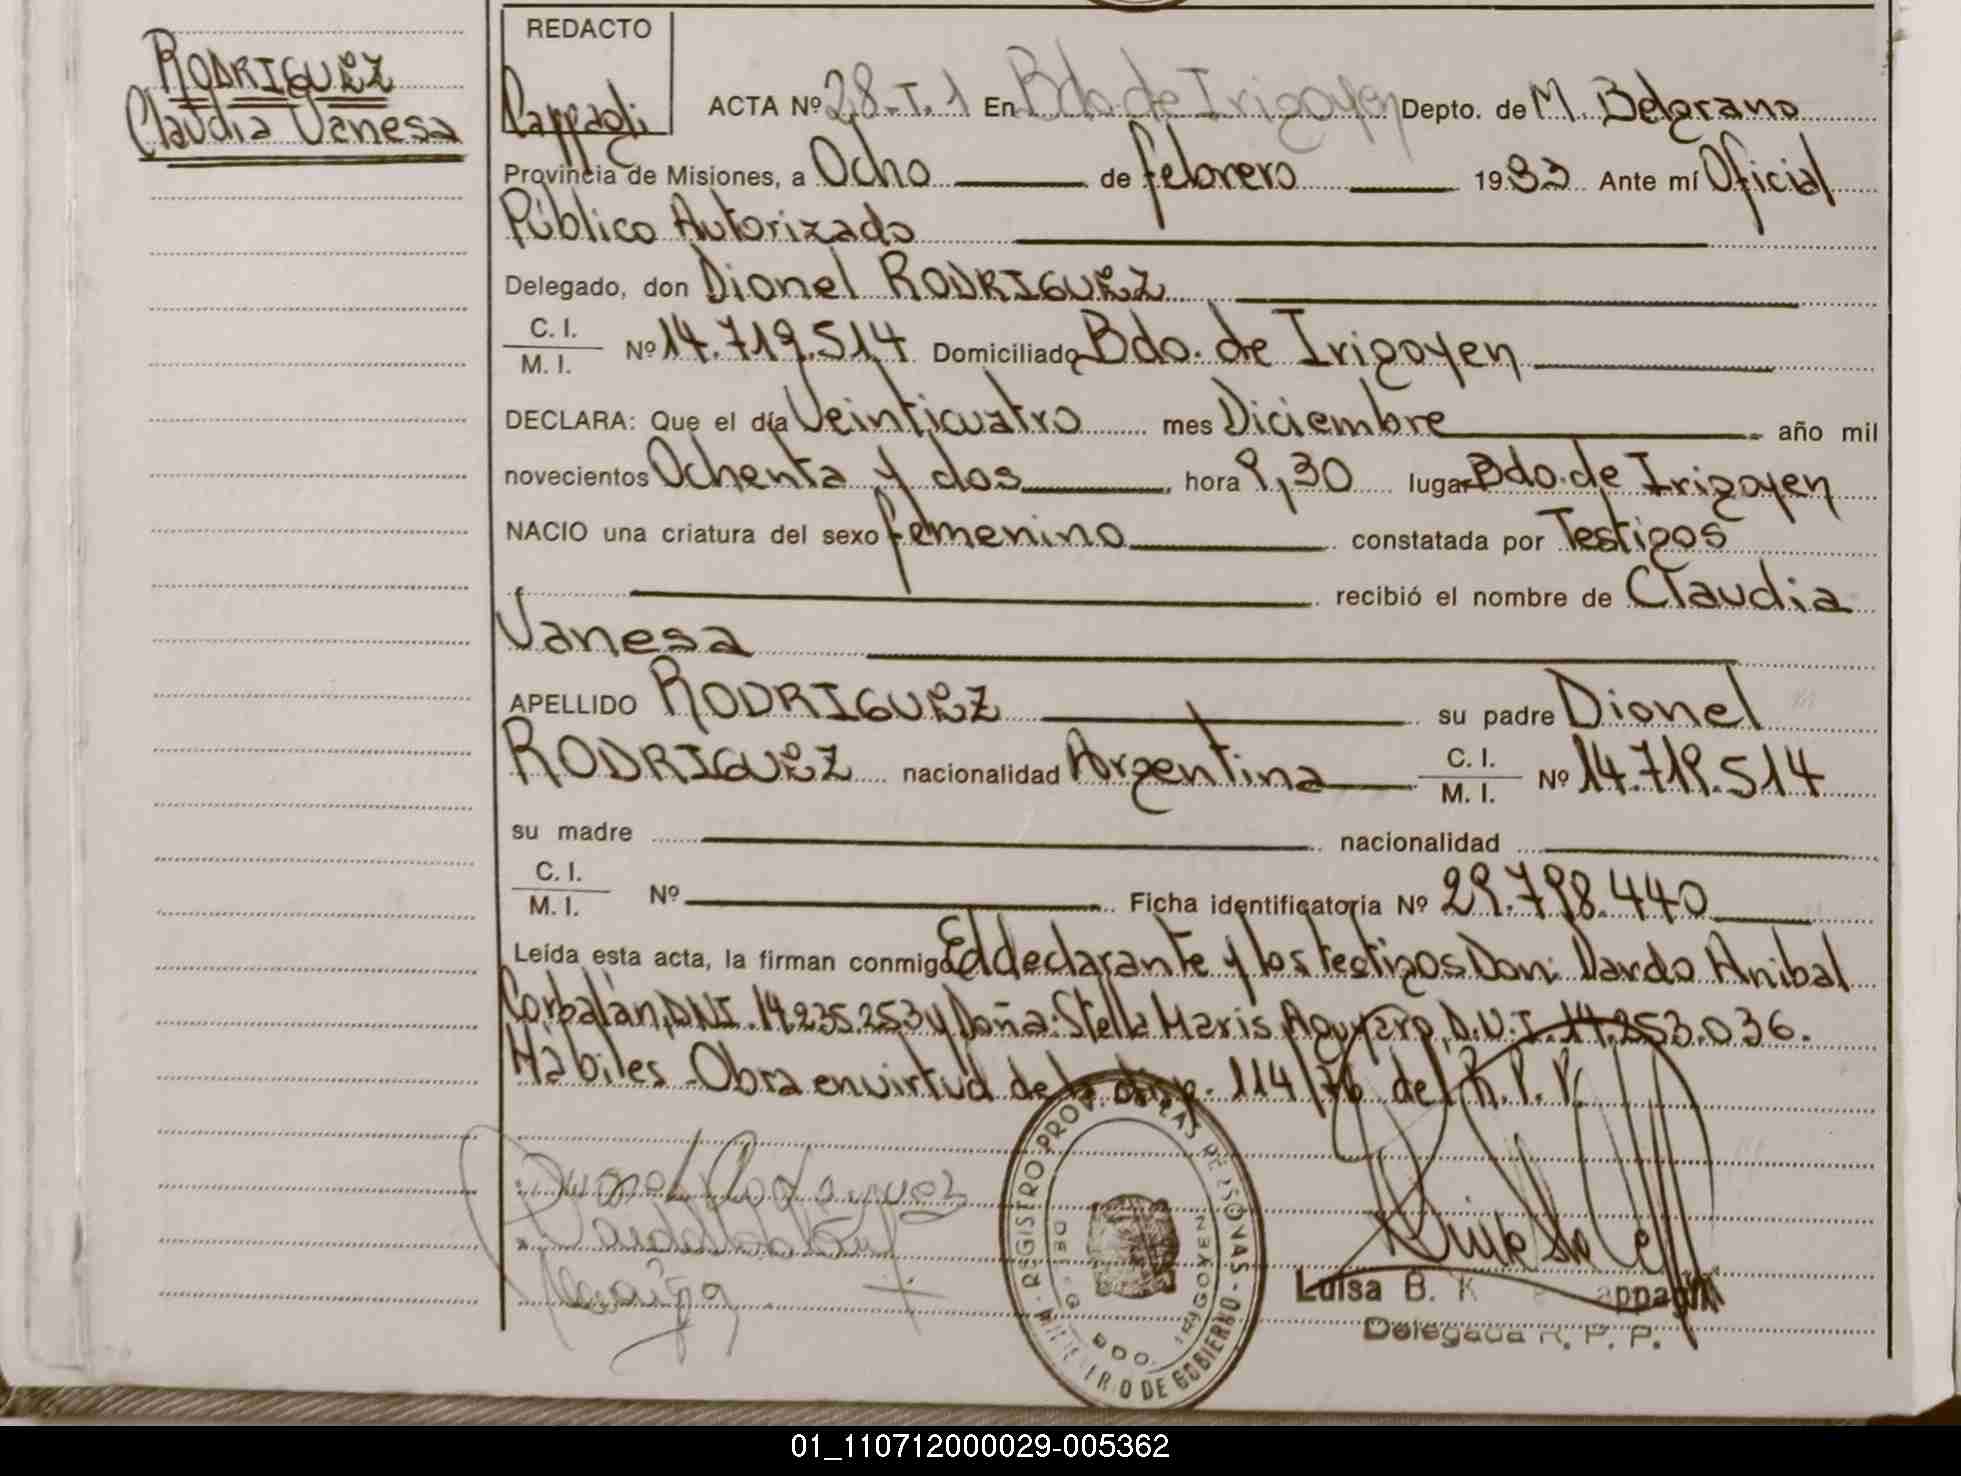 RODRIGUEZ
Claudia Vanesa
REDACTO
Cappagli
ACTA Nº 28-T.1 En Bdo. de Irigoyen Depto. de M. Belgrano
Provincia de Misiones, a Ocho de febrero 1983 Ante mí Oficial
Público Autorizado
Delegado, don Dionel RODRIGUEZ
C. I.
M. I. Nº 14.719.514 Domiciliado Bdo. de Irigoyen
DECLARA: Que el día Veinticuatro mes Diciembre año mil
novecientos Ochenta y dos hora 9,30 lugar Bdo. de Irigoyen
NACIO una criatura del sexo femenino constatada por Testigos
recibió el nombre de Claudia
Vanesa
APELLIDO RODRIGUEZ su padre Dionel
RODRIGUEZ nacionalidad Argentina C. I. M. I. Nº 14.719.514
su madre nacionalidad
C. I.
M. I. Nº Ficha identificatoria Nº 29.798.440
Leída esta acta, la firman conmigo El declarante y los testigos Don: Dardo Anibal
Corbalán, DNI. 14.235.253 y Doña: Stella Maris D.N.I. 14.253.036.
Hábiles - Obra en virtud de la disp. 114/76 del R.P.P.
REGISTRO PROV. DE LAS PERSONAS - MINISTERIO DE GOBIERNO
DELEG. BDO. IRIGOYEN
Luisa B. K appagli
Delegada R. P. P.
01_110712000029-005362